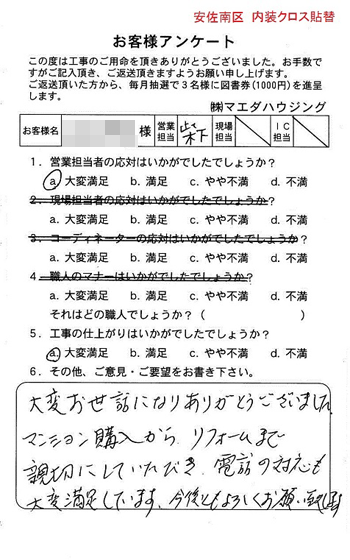 安佐南区 内装クロス貼替
お客様アンケート
この度は工事のご用命を頂きありがとうございました。お手数で
すがご記入頂き、ご返送頂きますようお願い申し上げます。
ご返送頂いた方から、毎月抽選で3名様に図書券(1000円)を進呈
します。
㈱マエダハウジング
お客様名 様 営業担当 現場担当 IC担当
1．営業担当者の応対はいかがでしたでしょうか?
a. 大変満足 b. 満足 c. やや不満 d. 不満
2．現場担当者の応対はいかがでしたでしょうか?
a. 大変満足 b. 満足 c. やや不満 d. 不満
3．コーディネーターの応対はいかがでしたでしょうか?
a. 大変満足 b. 満足 c. やや不満 d. 不満
4．職人のマナーはいかがでしたでしょうか?
a. 大変満足 b. 満足 c. やや不満 d. 不満
それはどの職人でしょうか? ( )
5．工事の仕上がりはいかがでしたでしょうか?
a. 大変満足 b. 満足 c. やや不満 d. 不満
6．その他、ご意見・ご要望をお書き下さい。
大変お世話になりありがとうございました。
マンション購入から、リフォームまで
親切にしていただき、電話の対応も
大変満足しています。今後ともよろしくお願い致します